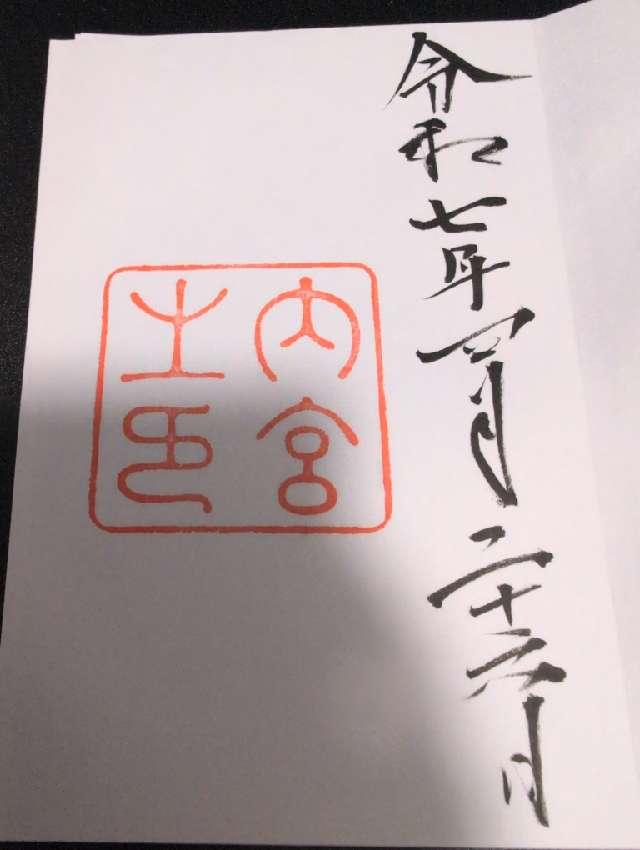 令和七年四月二十六日
内宮
之印